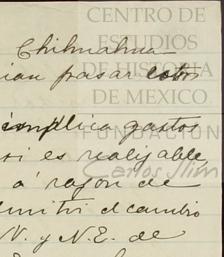 CENTRO DE
ESTUDIOS
DE HISTORIA
DE MEXICO
FUNDACIÓN
Carlos Slim
Chihuahua
ian pasar
implica gastos
si es realizable
a razón de
el cambio
N. y N.E. de